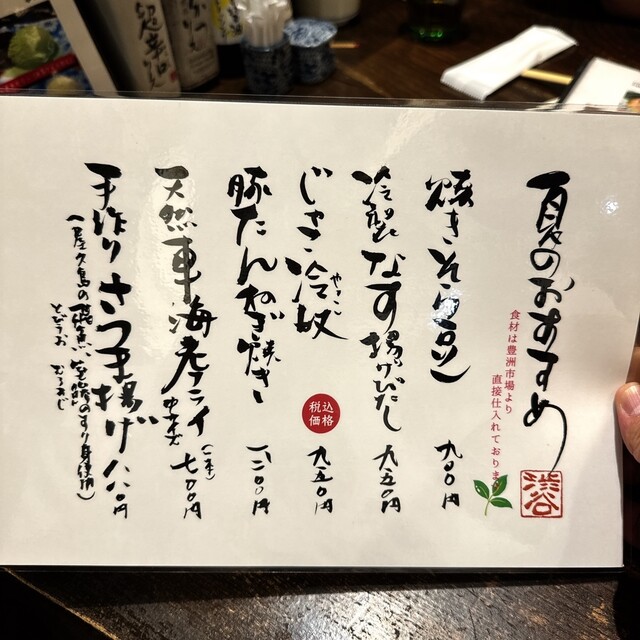 夏のおすすめ
食材は豊洲市場より
直接仕入れております
渋谷
焼きそら豆 九〇〇円
冷製なす揚げびたし 九五〇円
じゃこ冷奴 九五〇円
やっこ
税込
価格
豚たんねぎ焼き 一二〇〇円
天然車海老フライ (一本) 七〇〇円
手作りさつま揚げ 八八〇円
(屋久島の飛魚、
とびうお
のすり身使用)